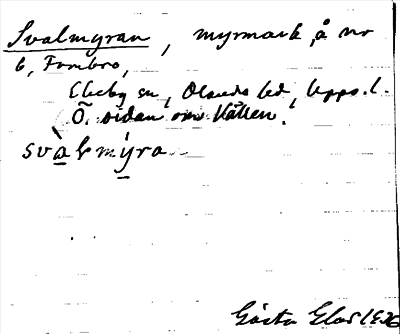 Svalmyran, myrmark å nr
6, Forsbro,
Ekeby sn, Olands hd, Upps. l.
Ö. sidan om Vällen.
svàlmýra
Gösta